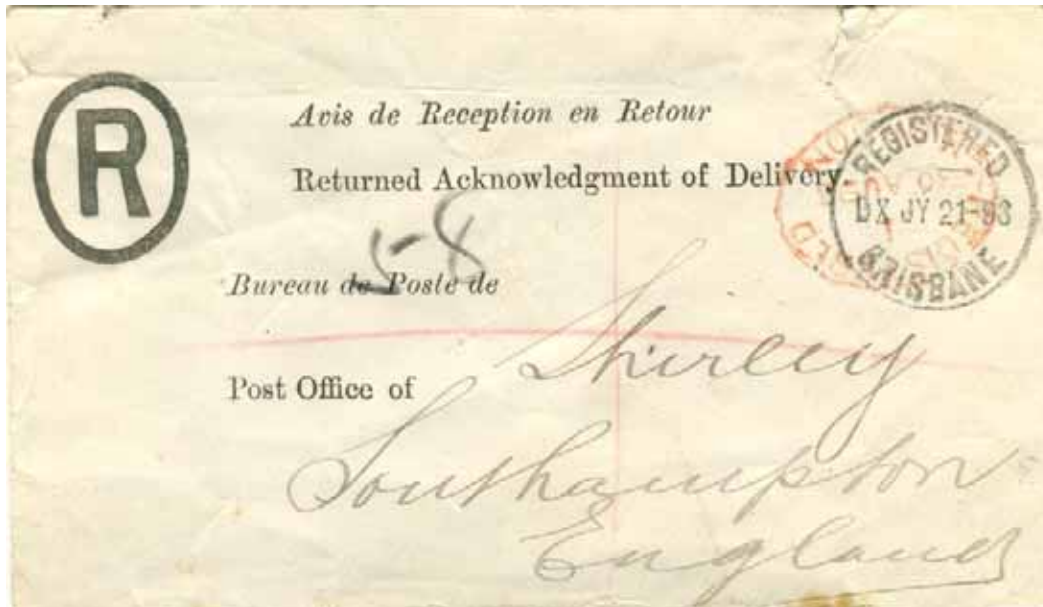 R
Avis de Reception en Retour
Returned Acknowledgment of Delivery.
REGISTERED
DX JY 21-93
BRISBANE
5-8
Bureau de Poste de
Shirley
Post Office of
Southampton
England